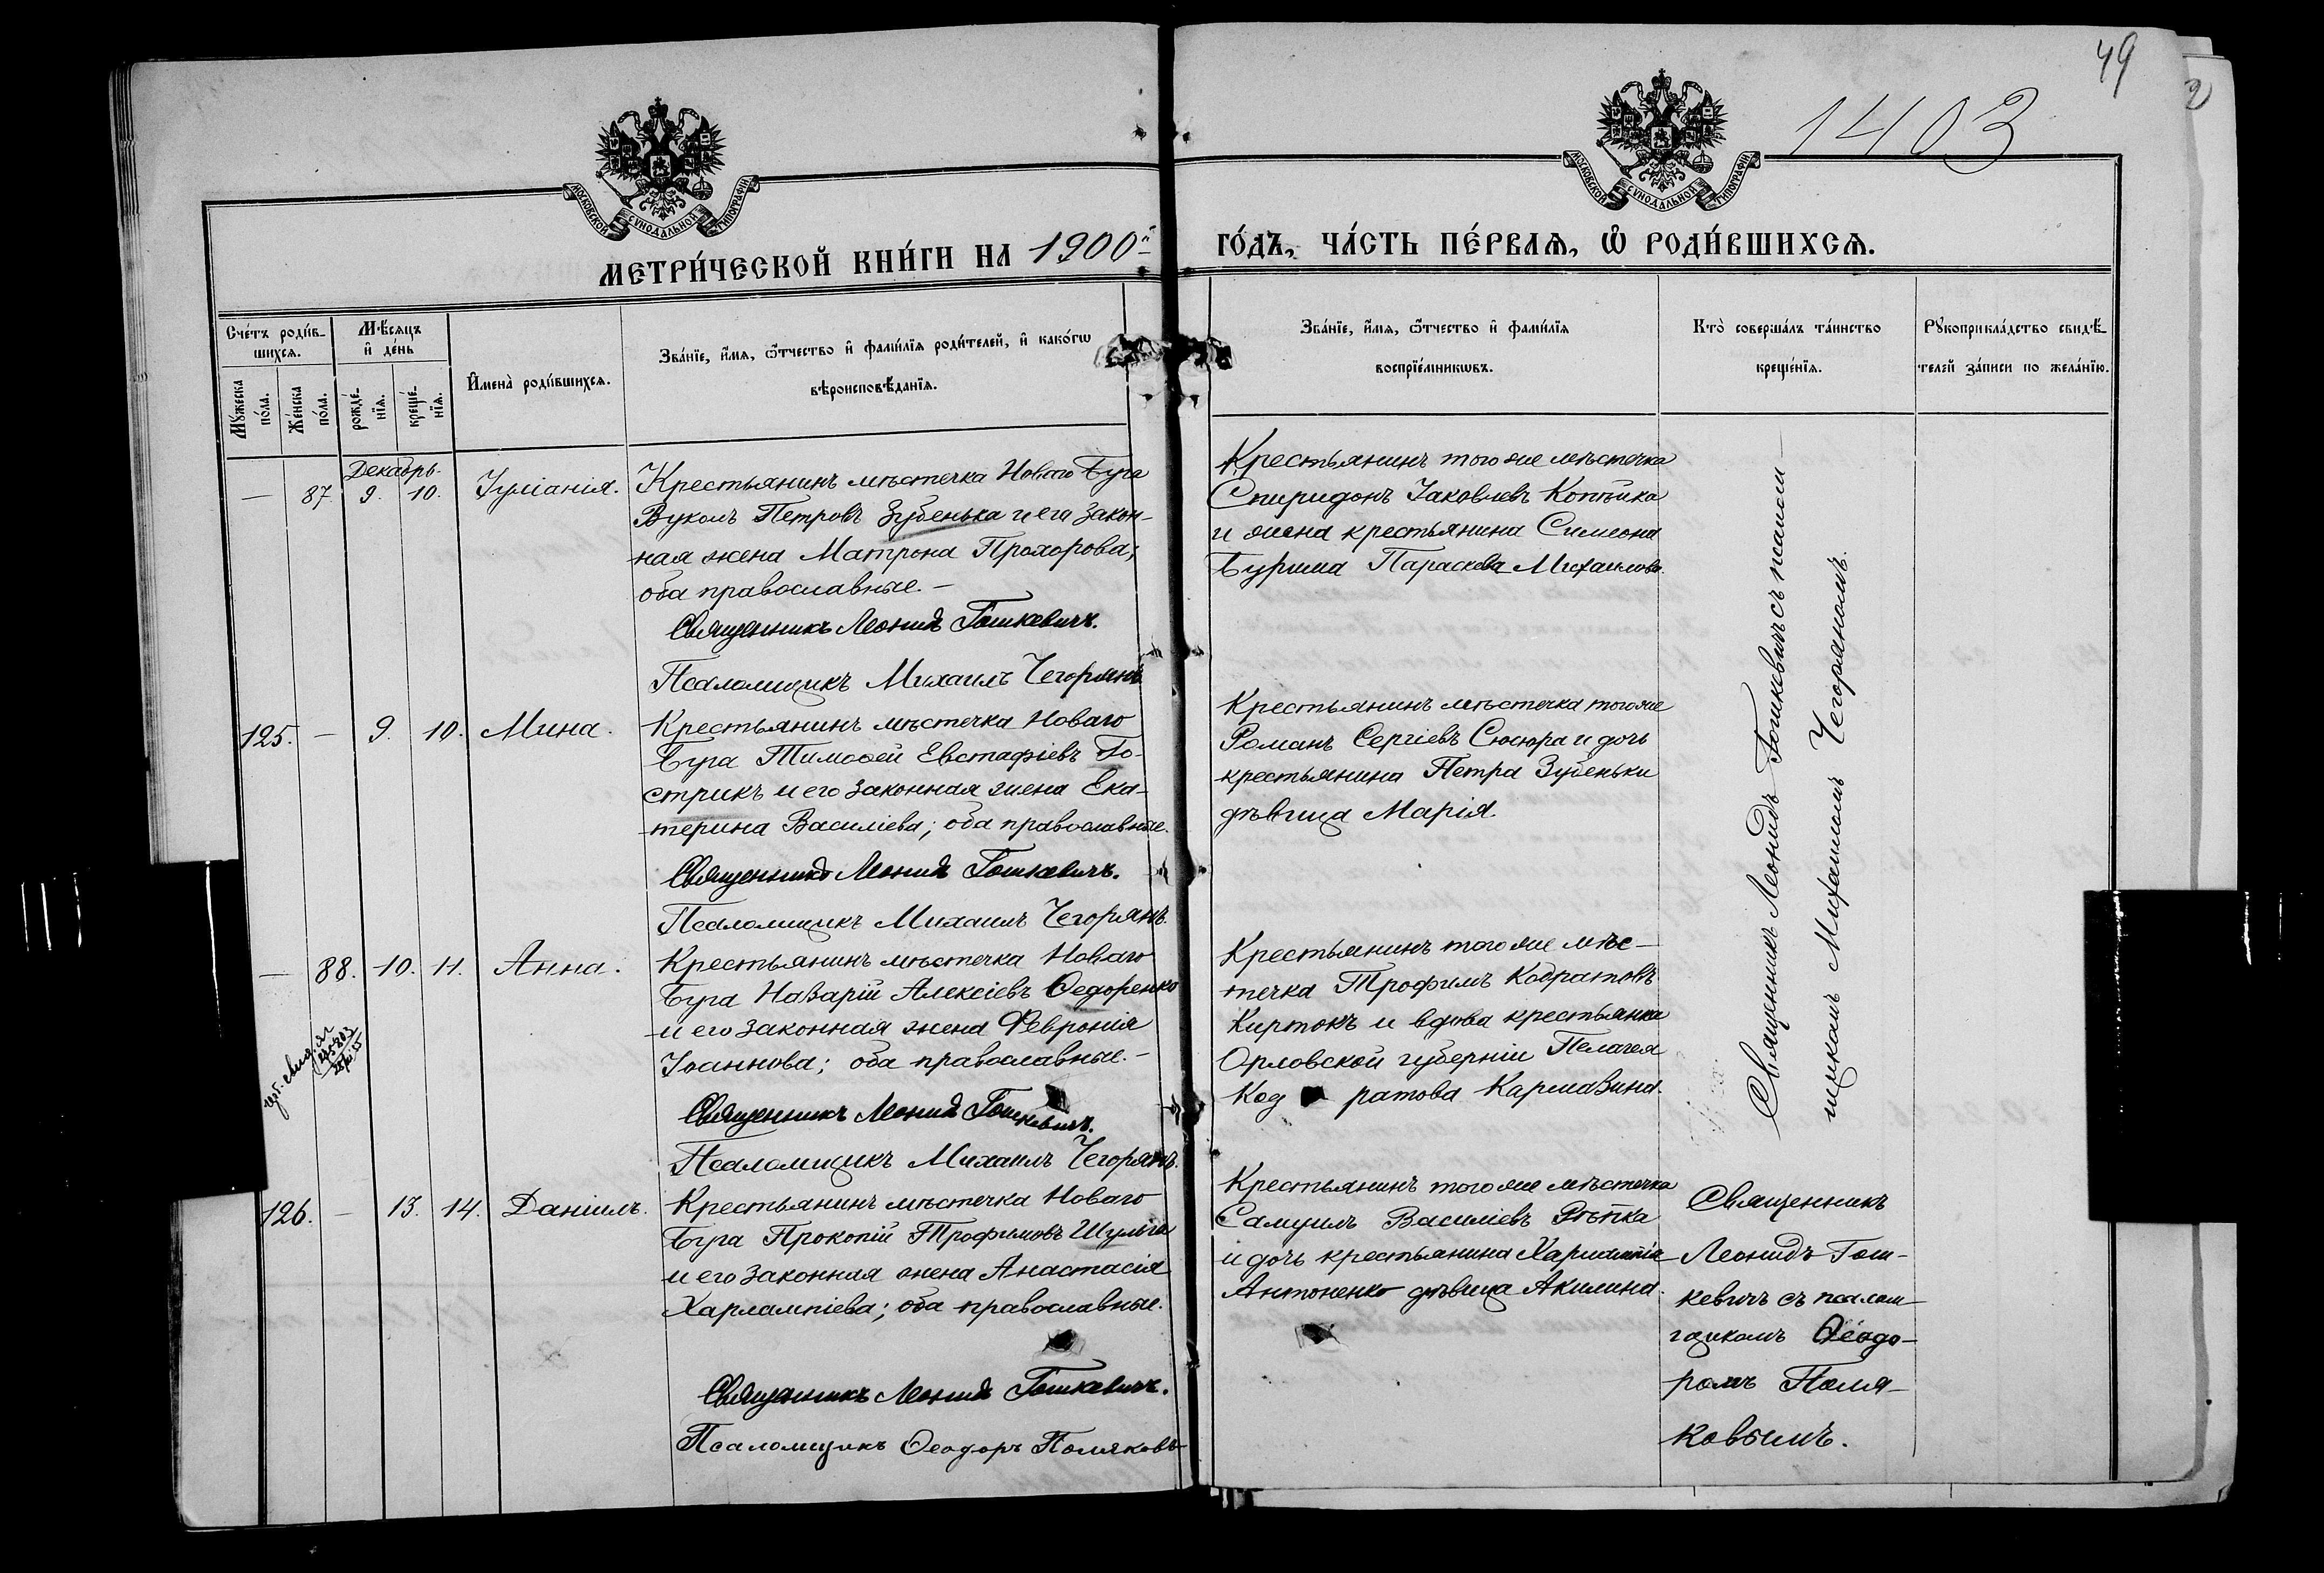 49
1403
МОСКОВСКОЙ СѴНОДАЛЬНОЙ ТИПОГРАФІИ
МОСКОВСКОЙ СѴНОДАЛЬНОЙ ТИПОГРАФІИ
МЕТРИ́ЧЕСКОЙ КНИ́ГИ НА 1900й
ГО́ДЪ, ЧА́СТЬ ПЕ́РВАѦ, Ѽ РОДИ́ВШИХСѦ.
Сче́тъ роди́в-
шихсѧ.
Мѣ́сяцъ
и҆ де́нь
И҆мена̀ роди́вшихсѧ.
Зва́нїе, и҆́мѧ, ѻ҆́тчество и҆ фами́лїѧ роди́телей, и҆ како́гѡ
вѣроисповѣ́данїѧ.
Мꙋ́жеска
по́ла.
Же́нска
по́ла.
рожде́-
нїѧ.
креще́-
нїѧ.
Зва́нїе, и҆́мѧ, ѻ҆́тчество и҆ фами́лїѧ
воспрїе́мникѡвъ.
Кто̀ соверша́лъ та́инство
креще́нїѧ.
Рꙋкоприкла́дство свидѣ́-
телей за́писи по жела́нїю.
Декабрь.
— 87. 9. 10. Іуліанія.
Крестьянинъ мѣстечка Новаго Буга
Вуколъ Петровъ Зубенька и его закон-
ная жена Матрона Прохорова;
оба православные. —
Священникъ Леонидъ Гошкевичъ.
Псаломщикъ Михаилъ Чегорянъ.
Крестьянинъ того же мѣстечка
Спиридонъ Іаковлевъ Копѣйка
и жена крестьянина Симеона
Бурима Параскева Михаилова.
125. — 9. 10. Мина.
Крестьянинъ мѣстечка Новаго
Буга Тимоѳей Евстафіевъ Го-
стрикъ и его законная жена Ека-
терина Василіева; оба православные.
Священникъ Леонидъ Гошкевичъ.
Псаломщикъ Михаилъ Чегорянъ.
Крестьянинъ мѣстечка того же
Романъ Сергіевъ Сюсюра и дочь
крестьянина Петра Зубеньки
дѣвица Марія.
— 88. 10. 11. Анна.
Крестьянинъ мѣстечка Новаго
Буга Назарій Алексіевъ Ѳедоренко
и его законная жена Февронія
Іоаннова; оба православные. —
Священникъ Леонидъ Гошкевичъ.
Псаломщикъ Михаилъ Чегорянъ.
Крестьянинъ того же мѣс-
течка Трофимъ Кодратовъ
Киртокъ и вдова крестьянка
Орловской губерніи Пелагея
Код ратова Кармазина.
Священникъ Леонидъ Гошкевичъ съ псалом-
щикомъ Михаиломъ Чегоряномъ.
126. — 13. 14. Даніилъ.
Крестьянинъ мѣстечка Новаго
Буга Прокопій Трофимовъ Шульга
и его законная жена Анастасія
Харлампіева; оба православные.
Священникъ Леонидъ Гошкевичъ.
Псаломщикъ Ѳеодоръ Поляковъ
Крестьянинъ того же мѣстечка
Самуилъ Василіевъ Рѣпка
и дочь крестьянина Харлампія
Антоненко дѣвица Акилина.
Священникъ
Леонидъ Гош-
кевичъ съ псалом-
щикомъ Ѳеодо-
ромъ Поля-
ковымъ.